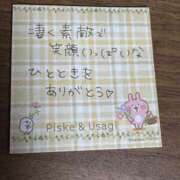 凄く素敵で
笑顔いっぱいな
ひとときを
ありがとう♡
Piske & Usagi